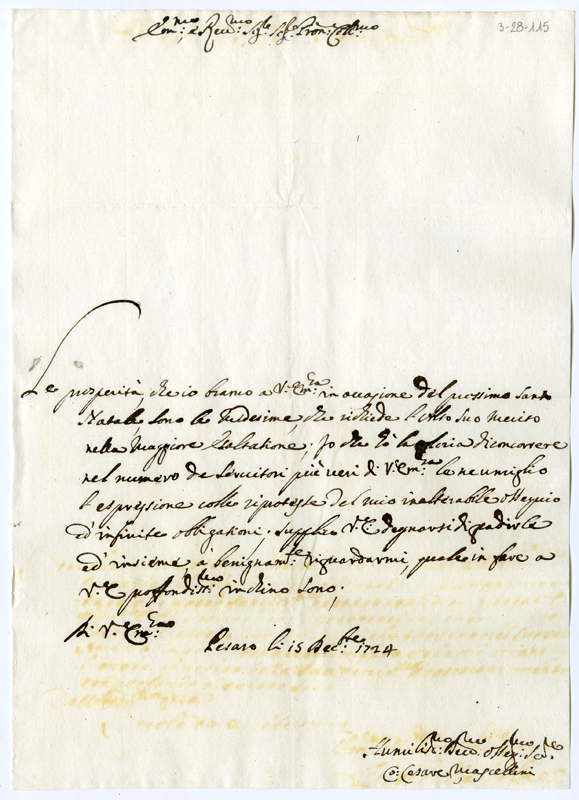 3-28-115
Em:mo e Rev:mo Sig:re Sig:re Pron: Coll:mo
Le prosperità, che io bramo a V: Em:za in occasione del prossimo Santo
Natale, sono le medesime, che richiede l'Alto Suo Merito
nella Maggiore Esaltatione; Io che hò la gloria di concorrere
nel numero de Servitori più veri di V: Em:za le ne umiglio
l'espressione colle riproteste del mio inalterabile ossequio
ed' infinite obligationi. Supplico V: E degnarsi di gradirle
ed' insieme à benignam:te riguardarmi, quale in fare a
V: E profondiss:mo inchino sono;
Di V: Em:za
Pesaro li 15 Dec:bre 1724
Humiliss:mo Dev:mo Osseq: Ser:re
Co: Cesare Mascellini